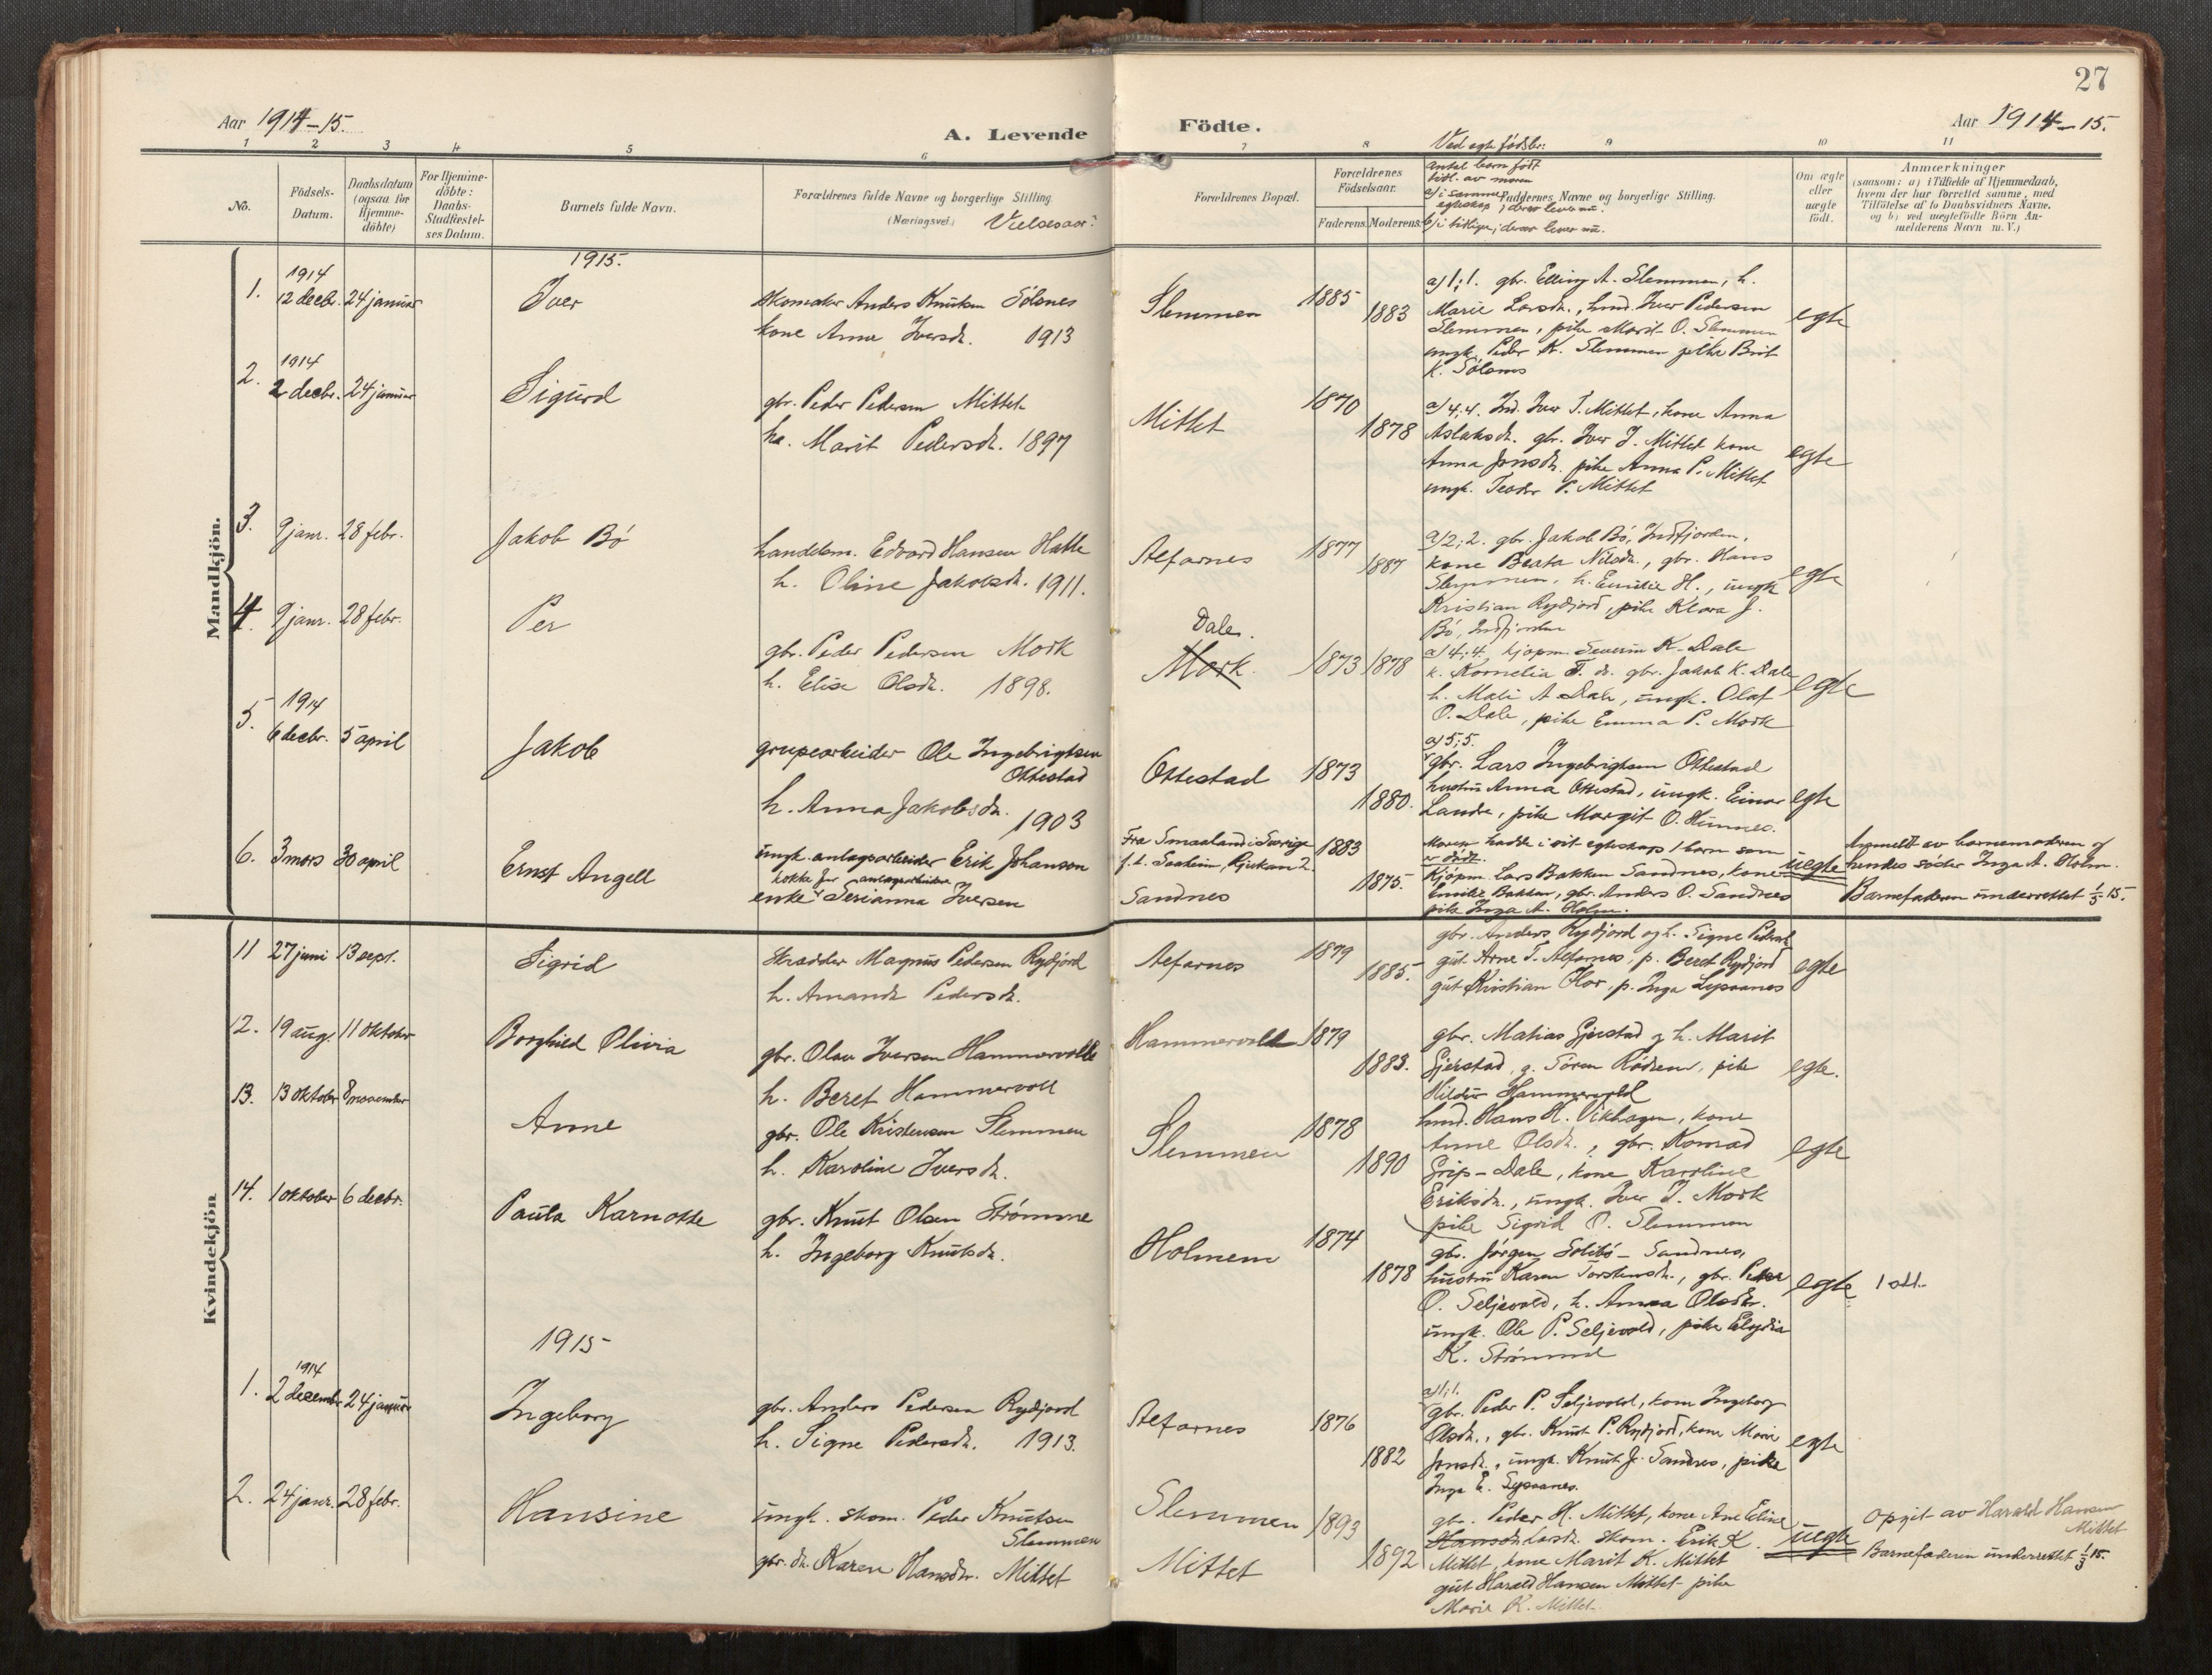 27
Aar 1914-15.
A. Levende
Födte.
Aar 1914-15.
1
2
3
4
5
6
7
8
9
10
11
No.
Födsels-
Datum.
Daabsdatum
(ogsaa for
Hjemme-
döbte)
For Hjemme-
döbte:
Daabs-
Stadfæstel-
ses Datum.
Barnets fulde Navn.
Forældrenes fulde Navne og borgerlige Stilling.
(Næringsvei.) Vielsesaar:
Forældrenes Bopæl.
Forældrenes
Födselsaar.
Faderens. Moderens.
Ved egte födsler:
antal barn födt
tidl. av moren
a) i samme
egteskap; derav lever nu.
b) i tidligere; derav lever nu.
Faddernes Navne og borgerlige Stilling.
Om ægte
eller
uægte
födt.
Anmærkninger
(saasom: a) i Tilfælde af Hjemmedaab,
hvem der har forrettet samme, med
Tilföielse af to Daabsvidners Navne,
og b) ved uægtefödte Börn An-
melderens Navn m. V.)
Mandkjön.
1915.
1.
1914
12 decbr. 24 januar
Iver
skomaker Anders Knutsen Sölsnes
kone Anna Iversdt. 1913
Slemmen
1885
1883
a) 1; 1. gbr. Elling A. Slemmen, h.
Marie Larsdt., hmd. Iver Pedersen
Slemmen, pike Marit O. Slemmen
ungk. Peder K. Slemmen pike Brit
K. Sölsnes
egte
2.
1914
2 decbr. 24 januar
Sigurd
gbr. Peder Pedersen Mittet
ho. Marit Pedersdt. 1897
Mittet
1870
1878
a) 4; 4. Ind. Iver T. Mittet, kone Anna
Aslaksdt. gbr. Iver J. Mittet kone
Anna Jonsdt. pike Anna P. Mittet
ungk. Teodor P. Mittet
egte
3.
9 janr. 28 febr.
Jakob Bö
handelsm. Edvard Hansen Hatle
h. Oline Jakobsdt. 1911.
Alfarnes
1877
1887
a) 2; 2. gbr. Jakob Bö, Indfjorden,
kone Beata Nilsdt., gbr. Hans
Slemmen, h. Emilie H., ungk
Kristian Rydjord, pike Klara J.
Bö, Indfjorden
egte
4.
9 janr. 28 febr.
Per
gbr. Peder Pedersen Mork
h. Elise Olsdt. 1898.
Dale.
Mork.
1873 1878
a) 4; 4. kjöpm. Severin K. Dale
k. Kornelia T. dt. gbr. Jakob K. Dale
h. Mali A Dale, ungk. Olaf
O. Dale, pike Emma P. Mork
egte
5.
1914
6 decbr. 5 april
Jakob
grupearbeider Ole Ingebrigtsen
Ottestad
h. Anna Jakobsdt.
1903
Ottestad
1873
1880.
a) 5; 5.
gbr. Lars Ingebrigtsen Ottestad
hustru Anna Ottestad, ungk. Einar
Lande, pike Margit O. Hunnes.
egte
6. 3 mars 30 april
Ernst Angell
ungk. anlagsarbeider Erik Johanson
kokke for anlagsarbeidere
enke Serianna Iversen
Fra Smaaland i Sverige
f. t. Saaheim, Rjukan 2.
Sandnes
1883
1875.
Moren hadde i sit egteskap 1 barn som
er dödt.
Kjöpm. Lars Bakken Sandnes, kone
Emilie Bakken, gbr. Anders O. Sandnes
pike Inga A. Holm.
uegte
Anmeldt av barnemoderen og
hendes söster Inga A. Holm.
Barnefaderen underrettet 1/5 15.
Kvindekjön
11 27 juni 13 sept.
Sigrid
Skrædder Magnus Pedersen Rydjord
h. Amanda Pedersdt.
Alfarnes
1879
1885.
gbr. Anders Rydjord og h. Signe Pedersdt
gut Arne T. Alfarnes, p. Beret Rydjord
gut Kristian Flor, p. Inga Sysaanes
egte
12. 19 aug. 11 oktober
Borghild Olivia
gbr. Olav Iversen Hammervoll
h. Beret Hammervoll
Hammervoll
1879
1883.
gbr. Matias Gjerstad og h. Marit
Gjerstad, g. Sören Rödseth, pike
Hildur Hammervold
egte.
13. 13 oktober 8 november
Anne
gbr. Ole Kristensen Slemmen
h. Karoline Iversdt.
Slemmen
1878
1890
hmd. Hans H. Vikhagen, kone
Anne Olsdt., gbr. Konrad
Grip-Dale, kone Karoline
Eriksdt., ungk. Iver J. Mork
pike Sigrid O. Slemmen
egte
14. 1 oktober 6 decbr.
Paula Karnotte
gbr. Knut Olsen Strömme
h. Ingeborg Knutsdt.
Holmem
1874
1878
gbr. Jörgen Solibö - Sandnes,
hustru Karen Torstensdt., gbr. Peder
O. Seljevold, h. Anna Olsdtr.
ungk. Ole P. Seljevold, pike Elydia
K. Strömme
egte
1 att.
1915
1.
1914
2 december 24 januar
Ingeborg
gbr. Anders Pedersen Rydjord
h. Signe Pedersdt. 1913.
Alfarnes
1876
1882
a) 1; 1.
gbr. Peder P. Seljevold, kone Ingeborg
Olsdt., gbr. Knut P. Rydjord, kone Marie
Jonsdt., ungk. Knut J. Sandnes, pike
Inga E. Sysaanes.
egte
2. 24 janr. 28 febr.
Hansine
ungk. skom. Peder Knutsen
Slemmen
gbr. dt. Karen Hansdtr. Mittet
Slemmen
Mittet
1893
1892
gbr. Peder H. Mittet, kone Ane Eline
Hansdt. Larsdt. skom. Erik K.
Mittet, kone Marit K. Mittet
gut Harald Hansen Mittet pike
Marie K. Mittet
uegte
Opgit av Harald Hansen
Mittet
Barnefaderen underrettet 1/3 15.